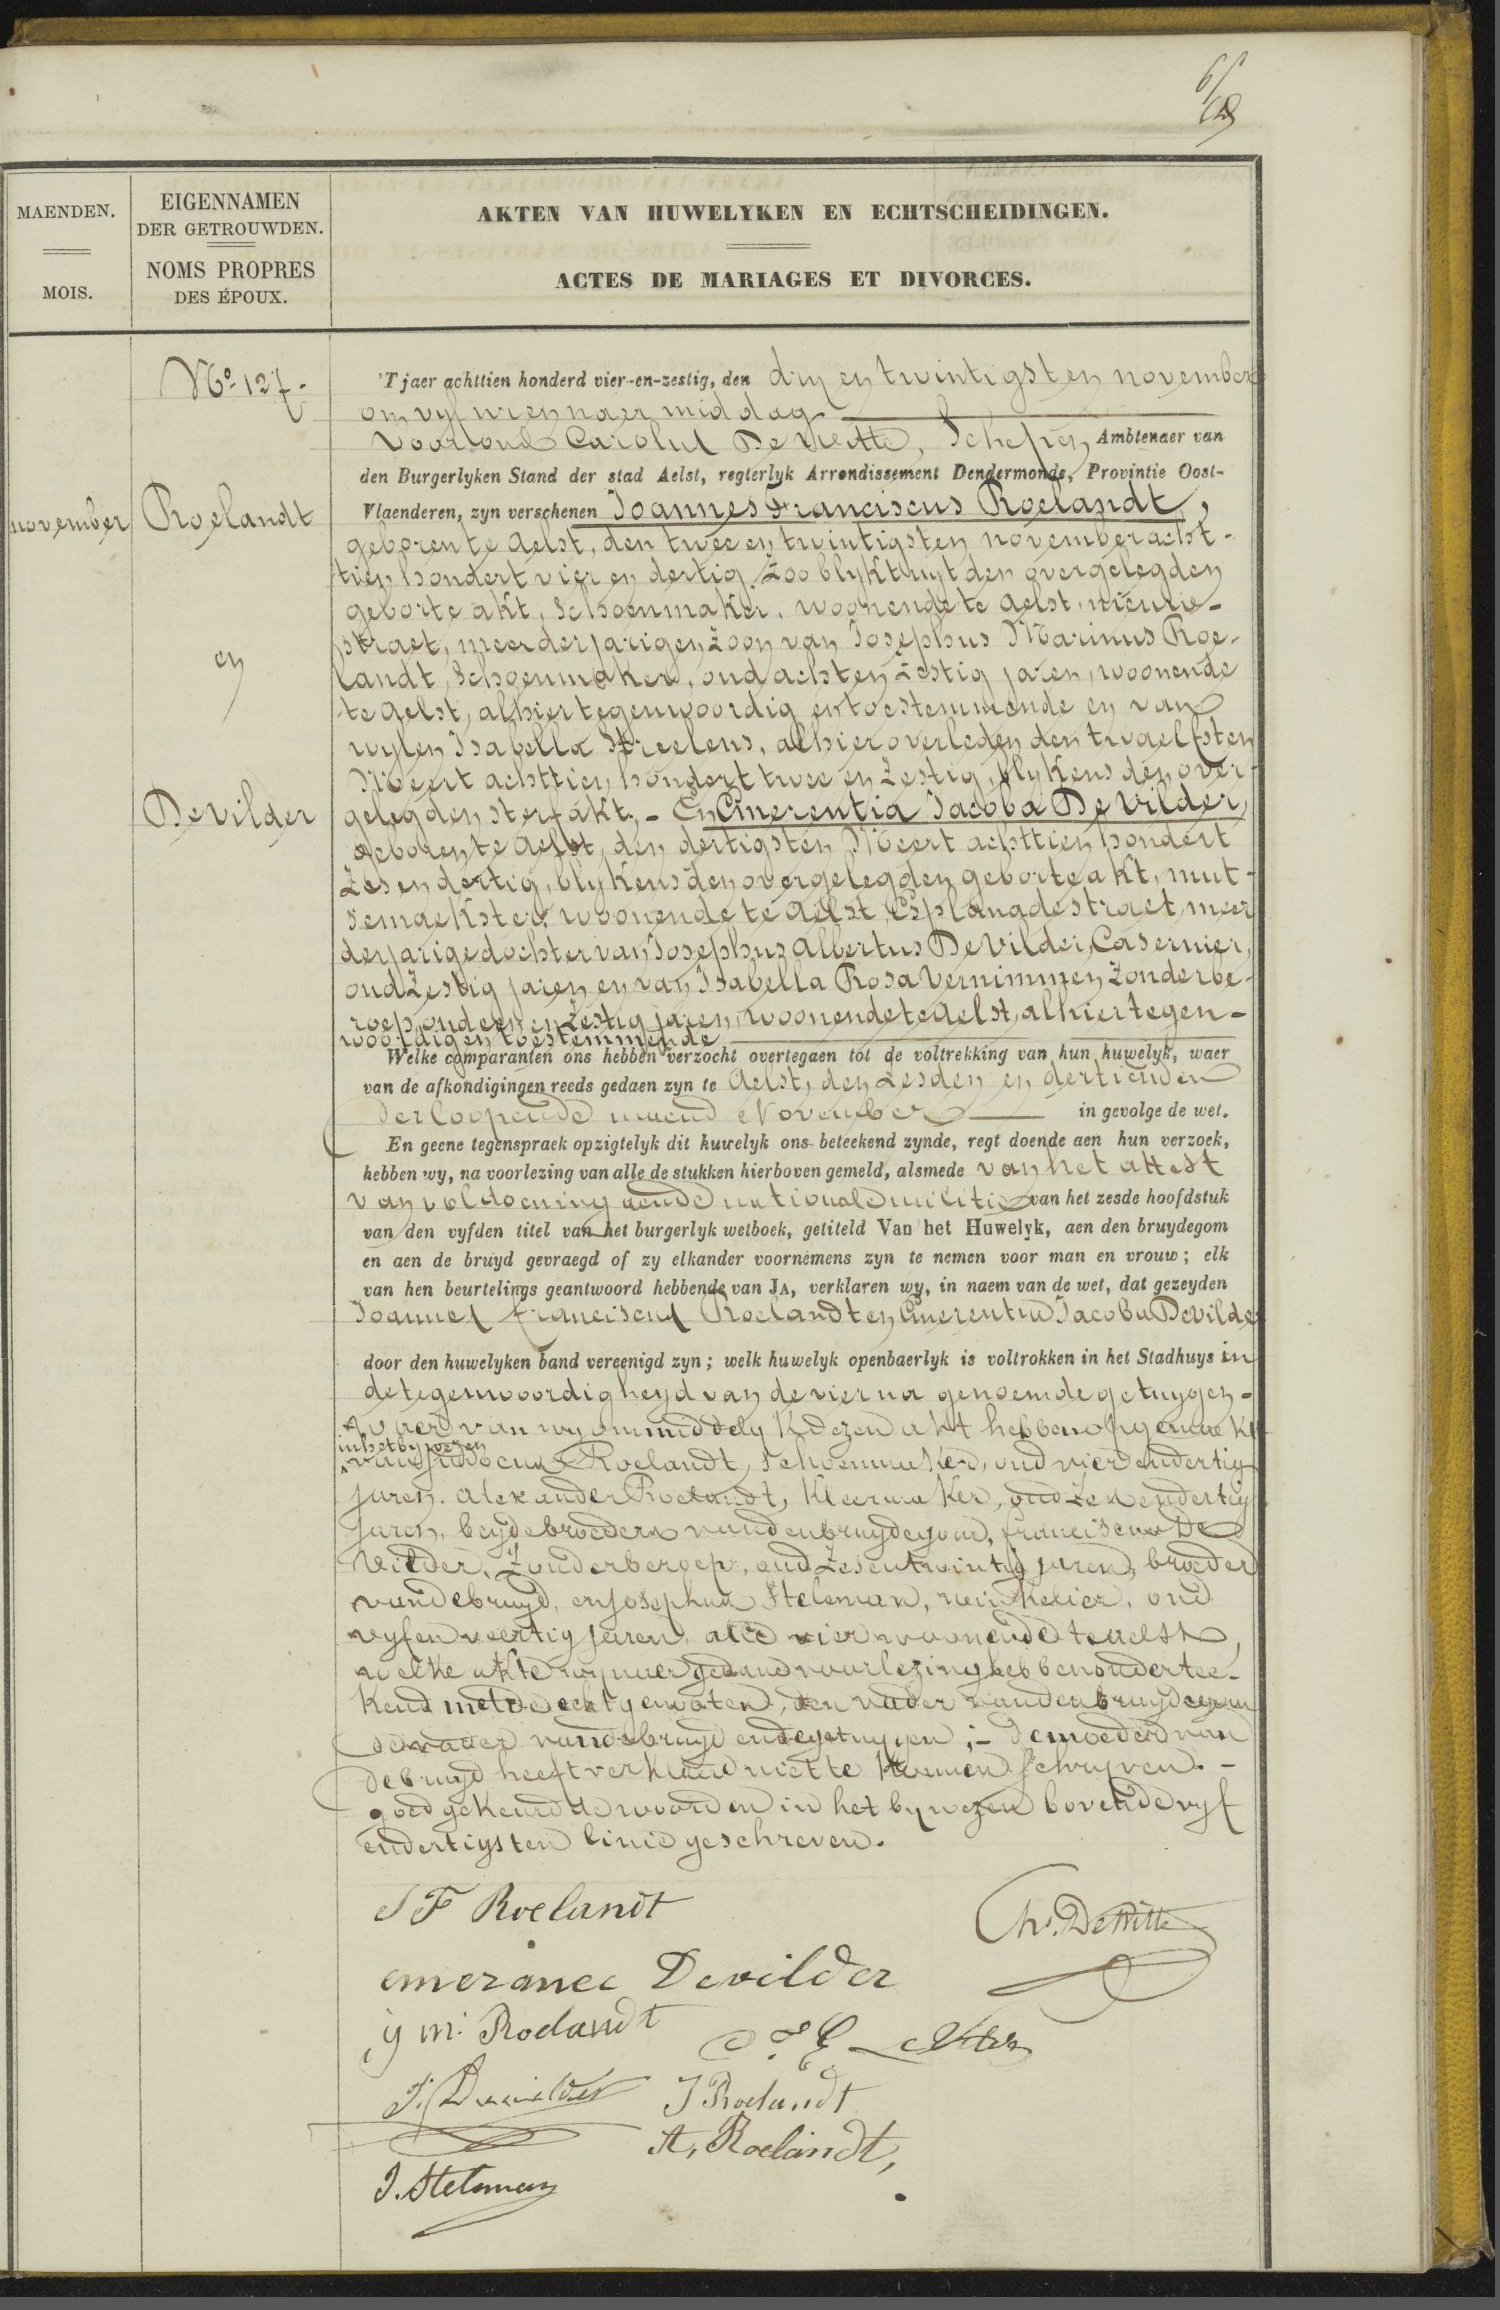 MAENDEN.
MOIS.
EIGENNAMEN
DER GETROUWDEN.
NOMS PROPRES
DES ÉPOUX.
AKTEN VAN HUWELYKEN EN ECHTSCHEIDINGEN.
ACTES DE MARIAGES ET DIVORCES.
No. 127.
november
Roelandt
en
De Vilder
'T jaer achttien honderd vier-en-zestig, den dry en twintigsten november
om vyf uren naer middag
Voor ons Carolus De Witte, Schepen Ambtenaer van
den Burgerlyken Stand der stad Aelst, regterlyk Arrondissement Dendermonde, Provintie Oost-
Vlaenderen, zyn verschenen Joannes Franciscus Roelandt,
geboren te Aelst, den twee en twintigsten november acht-
tien hondert vier en dertig, zoo blykt uyt den overgelegden
geborte akt, Schoenmaker, woonende te Aelst, nieuw-
straet, meerderjarigen zoon van Josephus Marinus Roe-
landt, Schoenmaker, oud acht en zestig jaren, woonende
te Aelst, alhier tegenwoordig en toestemmende en van
wylen Isabella Streelens, alhier overleden den twaelfsten
Meert achttien hondert twee en zestig, blykens den over-
gelegden sterfakt, - En Emerentia Jacoba De Vilder,
geboren te Aelst, den dertigsten Meert achttien hondert
zes en dertig, blykens den overgelegden geborte akt, mut-
semaekster, woonende te Aelst, Esplanadestraet, meer
derjarige dochter van Josephus Albertus De Vilder, Casernier,
oud zestig jaren en van Isabella Rosa Vernimmen zonder be-
roep, oud een en zestig jaren, woonende te Aelst, alhier tegen-
woordig en toestemmende
Welke comparanten ons hebben verzocht overtegaen tot de voltrekking van hun huwelyk, waer
van de afkondigingen reeds gedaen zyn te Aelst, den zesden en dertienden
der loopende maend November in gevolge de wet.
En geene tegenspraek opzigtelyk dit huwelyk ons beteekend zynde, regt doende aen hun verzoek,
hebben wy, na voorlezing van alle de stukken hierboven gemeld, alsmede van het attest
van voldoening aen de nationale militie van het zesde hoofdstuk
van den vyfden titel van het burgerlyk wetboek, getiteld Van het Huwelyk, aen den bruydegom
en aen de bruyd gevraegd of zy elkander voornemens zyn te nemen voor man en vrouw; elk
van hen beurtelings geantwoord hebbende van JA, verklaren wy, in naem van de wet, dat gezeyden
Joannes Franciscus Roelandt en Emerentia Jacoba De Vilder
door den huwelyken band vereenigd zyn; welk huwelyk openbaerlyk is voltrokken in het Stadhuys in
de tegenwoordigheyd van de vier na genoemde getuygen -
Waer van wy onmiddelyk dezen akt hebben opgemaekt
in het bywezen
van Roelandt, Schoenmaker, oud vier en dertig
jaren, Alexander Roelandt, Kleermaker, oud zes en dertig
jaren, beyde broeders van den bruydegom, Franciscus De
Vilder, zonder beroep, oud zes en twintig jaren, broeder
van de bruyd, en Josephus Steleman, winkelier, oud
vyf en veertig jaren, alle vier woonende te Aelst,
welke akte wy naer gedane voorlezing hebben ondertee-
kend met de echtgenoten, den vader van den bruydegom
de vader van de bruyd en de getuygen; - De moeder van
de bruyd heeft verklaerd niet te konnen schryven. -
goed gekeurd de woorden in het bywezen boven de vyf
en dertigsten linie geschreven.
J F Roelandt
Chs. DeWitte
emerance Devilder
j m. Roelandt
J. Devilder
J Roelandt
A, Roelandt,
J. Steleman